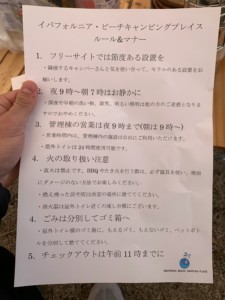 イバフォルニア・ビーチキャンピングプレイス
ルール&マナー
1. フリーサイトでは節度ある設営を
・隣接するキャンパーさんと気を使い合って、モラルのある設営をお
願いします。
2. 夜9時〜朝7時はお静かに
・深夜や早朝の洗い物、談笑、明るい照明は他の方のご迷惑となりま
すのでおやめください。
3. 管理棟の営業は夜9時まで(朝は9時〜)
・営業時間内は、管理棟内の施設は自由にご利用いただけます。
・屋外トイレは24時間使用可能です。
4. 火の取り扱い注意
・直火は禁止です。BBQやたき火を行う際は、必ず器具を使い、地面
にダメージのない方法でお楽しみください。
・燃え残った炭や灰は所定の場所に捨ててください。
・消火器は屋外トイレ近くの流し台横にございます。
4. ごみは分別してゴミ箱へ
・屋外トイレ横のゴミ箱に、もえるゴミ、もえないゴミ、ペットボト
ルを分別して捨ててください。
5. チェックアウトは午前11時までに